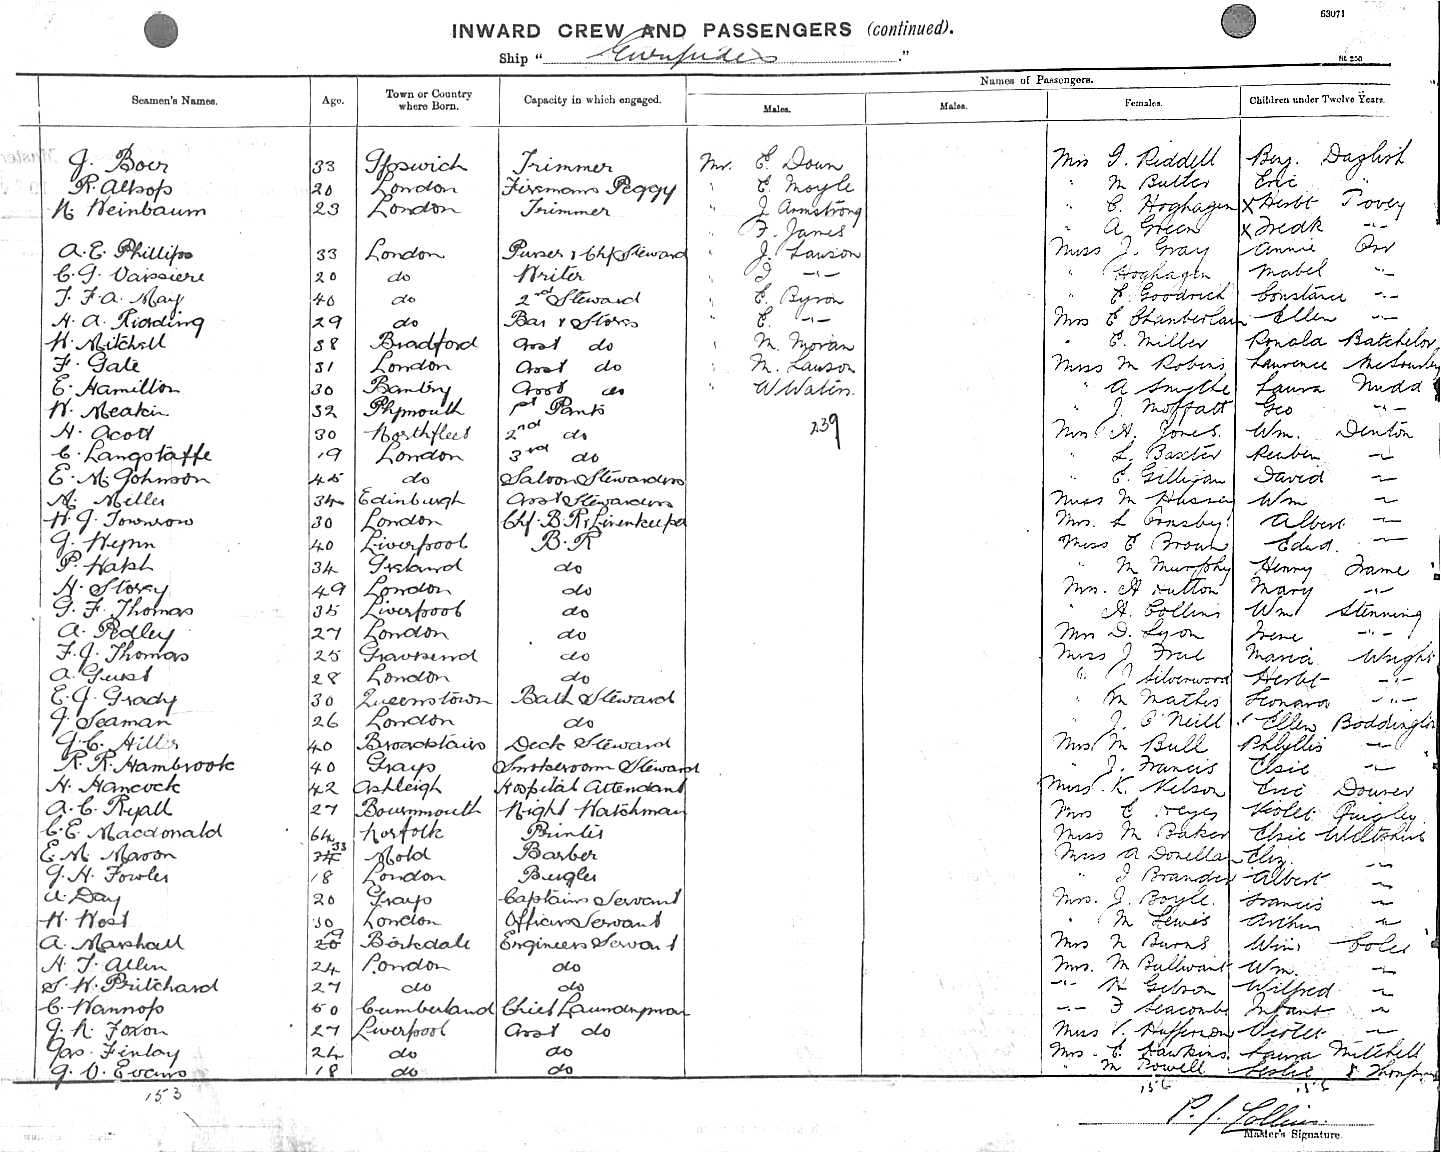 63071
INWARD CREW AND PASSENGERS (continued).
Ship " Euripides ."
Names of Passengers.
Seamen's Names. Age. Town or Country where Born. Capacity in which engaged. Males. Males. Females. Children under Twelve Years.
J. Boer 33 Ipswich Trimmer Mr. E. Doun Mrs I. Riddell Benj. Daglish
R. Allsop 20 London Firemans Peggy " E. Moyle " M Butler Eric "
H Weinbaum 23 London Trimmer " J. Armstrong " E. Hoghagen X Herbt Tovey
" F. James " A Green X Fredk -"-
A. E. Phillips 33 London Purser & Chf Steward " J. Lawson Miss J. Gray Annie Orr
C. G. Vaissiere 20 do Writer " J -"- " Hoghagen Mabel -"-
T. F. A. May 40 do 2nd Steward " E. Byron " E. Goodrich Constance -"-
H. A. Riording 29 do Bar & Stores " E. -"- Mrs E Chamberlain Ellen -"-
W. Mitchell 38 Bradford Asst do " M. Moran " E. Miller Ronald Batchelor
F. Gate 31 London Asst do " M. Lawson Miss M Robins Laurence
E. Hamilton 30 Asst do " W " A Smythe Laura Nudd
W. Meakin 32 Plymouth 1st Pants " J. Moffatt Geo -"-
H. Acott 30 Northfleet 2nd do 239 Mrs H. Jones. Wm. Denton
C. Langstaffe 19 London 3rd do " L. Baxter Reuben "
E. M. Johnson 45 do Saloon Stewardess " E. Gilligan David "
M. Miller 34 Edinburgh Asst Stewardess Miss M Hussey Wm "
H. J. Townrow 30 London Chf. B. R. & Linenkeeper Mrs. L Ormsby. Albert "
J. Wynn 40 Liverpool B. R Miss E Brown Edwd. "
P. Walsh 34 Ireland do " M Murphy Henry Frame
H. Storey 49 London do Mrs. H Hutton Mary -"-
G. F. Thomas 35 Liverpool do " H. Collins Wm Stenning
A. Pedley 27 London do Mrs D. Lyon Irene -"-
F. J. Thomas 25 Gravesend do Miss J. True Maria Wright
A Guest 28 London do " J Silverwood Herbt -"-
E. J. Grady 30 Queenstown Bath Steward " M Mathis Leonard -"-
J. Seaman 26 London do " J. O'Neill Ellen Boddington
G. C. Hills 40 Broadstairs Deck Steward Mrs M Bull Phlyllis "
R. R. Hambrook 40 Grays Smokeroom Steward " J. Francis Elsie "
H. Hancock 42 Ashleigh Hospital Attendant Miss. K. Nelson Eric Douner
A. C. Ryall 27 Bournmouth Night Watchman Mrs E Keyes Violet Quigley
C. E. Macdonald 64 Norfolk Printer Miss M Baker Elsie Wiltshire
E M Mason 33 Mold Barber Miss A Donellan Eliz. "
G. H. Fowler 18 London Bugler " J Brander Albert "
A Day 20 Grays Captains Servant Mrs. J. Boyle. Francis "
W. West 30 London Officers Servant " M Lewis Arthur "
A. Marshall 19 Birkdale Engineers Servant Mrs N Burns Wini Coles
H. T. Allin 24 London do Mrs. M Bullivant Wm. "
S. W. Pritchard 27 do do -"- H Gibson Wilfred "
C. Wannop 50 Cumberland Chief Laundryman -"- F Seacombe Infant "
J. N. Foxon 27 Liverpool Asst do Miss V. Heffernon Violet "
Jas. Finlay 24 do do Mrs. E. Hawkins Laura Mitchell
G. O. Evans 18 do do " M Powell Leslie Thompson
153 156 156
P. J. Collins.
Master's Signature.